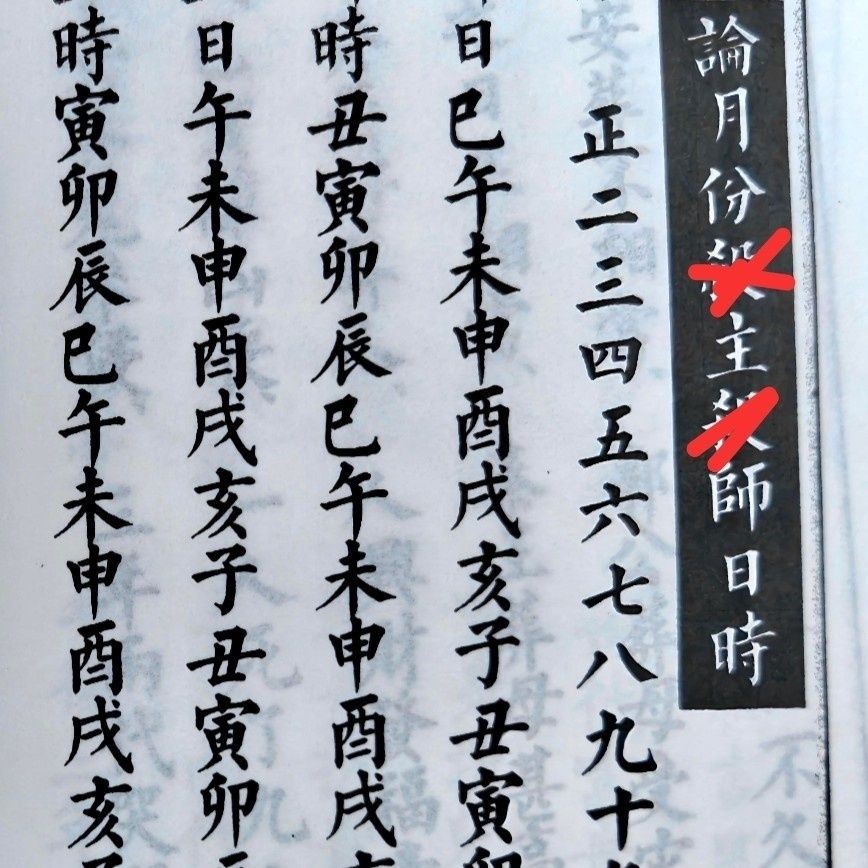 論月份殺主殺師日時
正二三四五六七八九十
日巳午未申酉戌亥子丑寅卯
時丑寅卯辰巳午未申酉戌
日午未申酉戌亥子丑寅卯
時寅卯辰巳午未申酉戌亥